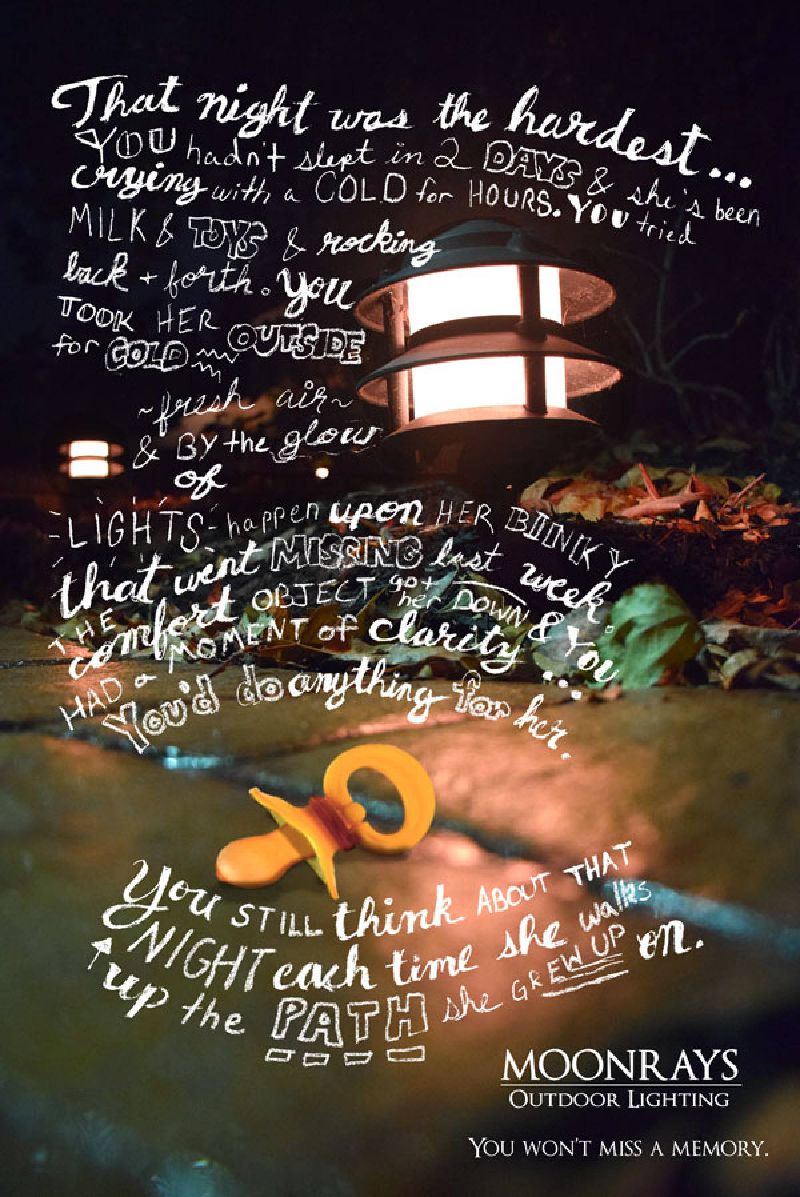 That night was the hardest...
YOU hadn't slept in 2 DAYS & she's been
crying with a COLD for HOURS. YOU tried
MILK & TOYS & rocking
back + forth. You
TOOK HER OUTSIDE
for COLD
~fresh air~
& BY the glow
of
LIGHTS- happen upon HER BINKY
that went MISSING last week.
THE comfort OBJECT got her DOWN & You
HAD a MOMENT of clarity...
You'd do anything for her.
You STILL think ABOUT THAT
NIGHT each time she walks
up the PATH she GREW UP on.
MOONRAYS
OUTDOOR LIGHTING
YOU WON'T MISS A MEMORY.